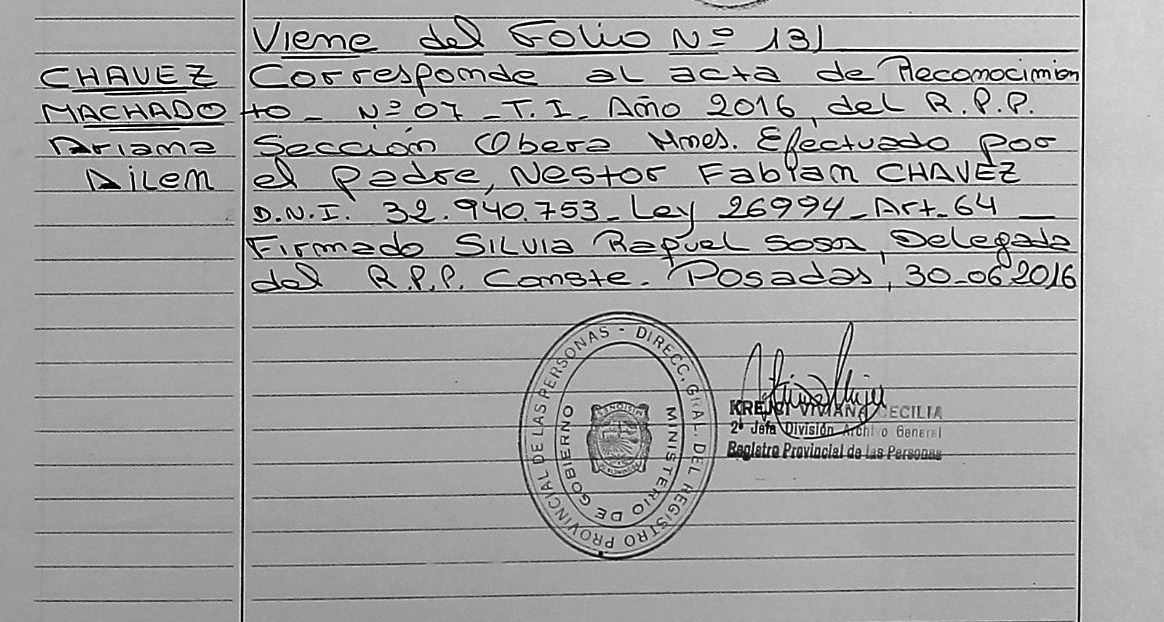 Viene del Folio Nº 131
CHAVEZ
MACHADO
Ariana
Ailen
Corresponde al acta de Reconocimien
to - Nº 07 - T.I. Año 2016, del R.P.P.
Sección Obera Mnes. Efectuado por
el padre, Nestor Fabian CHAVEZ
D.N.I. 32.940.753 - Ley 26994 - Art. 64 —
Firmado SILVIA Raquel Sosa, Delegada
del R.P.P. Conste. Posadas, 30-06-2016
REGISTRO PROVINCIAL DE LAS PERSONAS - DIRECC. GRAL. DEL
MINISTERIO DE GOBIERNO
KREJCI VIVIANA CECILIA
2ª Jefa División Archivo General
Registro Provincial de las Personas